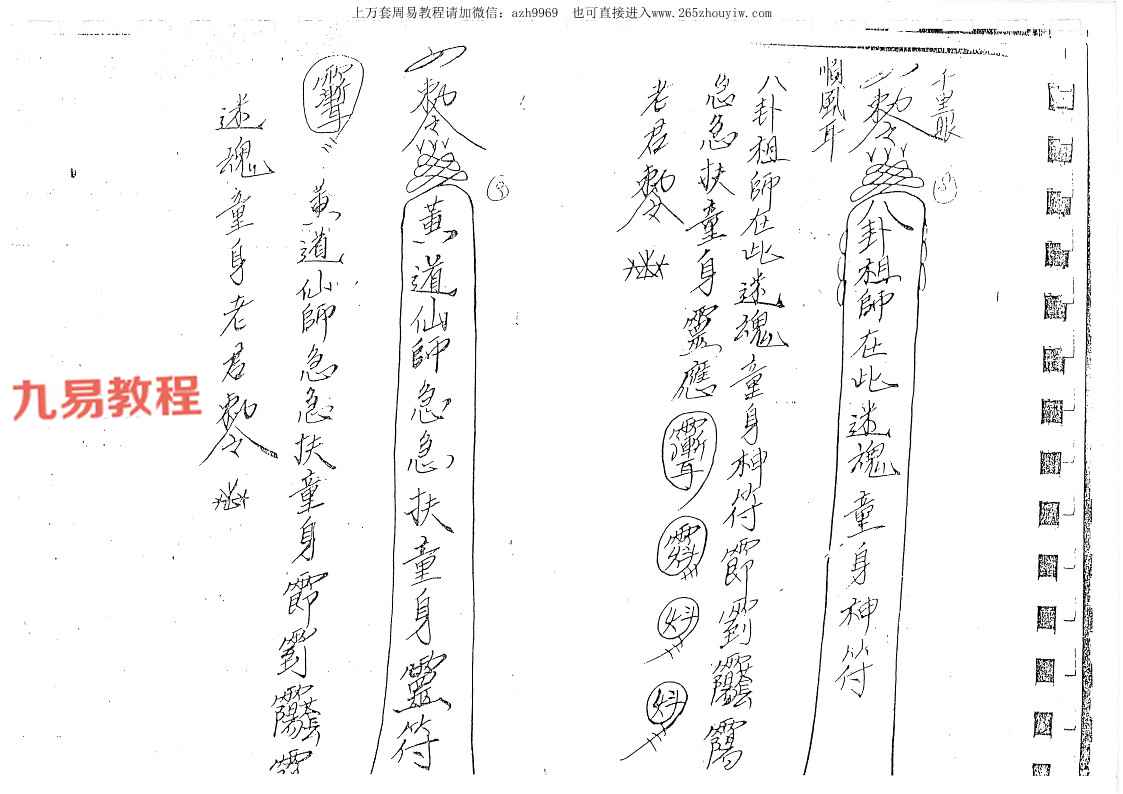 上万套周易教程请加微信：azh9969　也可直接进入www.265zhouyiw.com
千里眼
敕令
八卦祖師在此迷魂童身神符
順風耳
八卦祖師在此迷魂童身神符
急急扶童身靈應
老君敕令
敕令
黃道仙師急急扶童身靈符
黃道仙師急急扶童身
迷魂童身老君敕令
九易教程